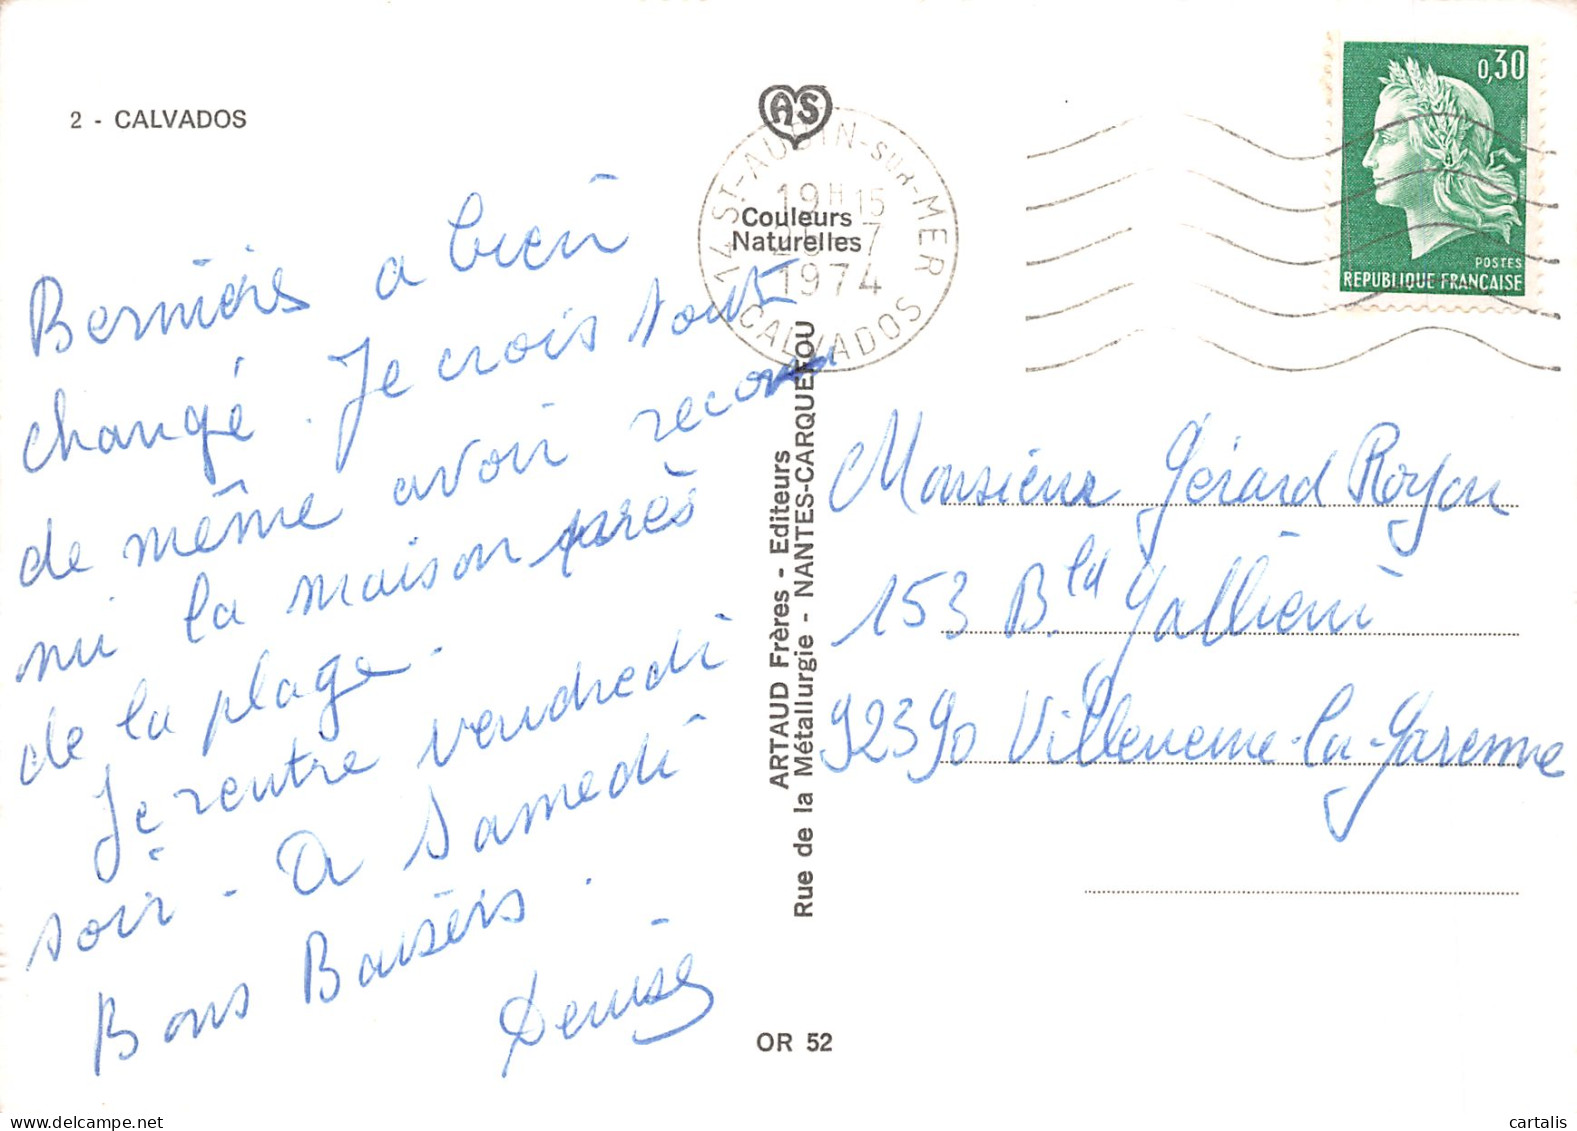 2 - CALVADOS
Bernières a bien
changé. Je crois tout
de même avoir recon
nu la maison près
de la plage.
Je rentre vendredi
soir. A Samedi
Bons Baisers.
Denise
AS
Couleurs
Naturelles
14 ST-AUBIN-SUR-MER
19H15
7
1974
CALVADOS
ARTAUD Frères - Editeurs
Rue de la Métallurgie - NANTES-CARQUEFOU
OR 52
0,30
POSTES
REPUBLIQUE FRANÇAISE
Monsieur Gérard Royon
153 Bld Galliéni
92390 Villeneuve-la-Garenne
cartalis